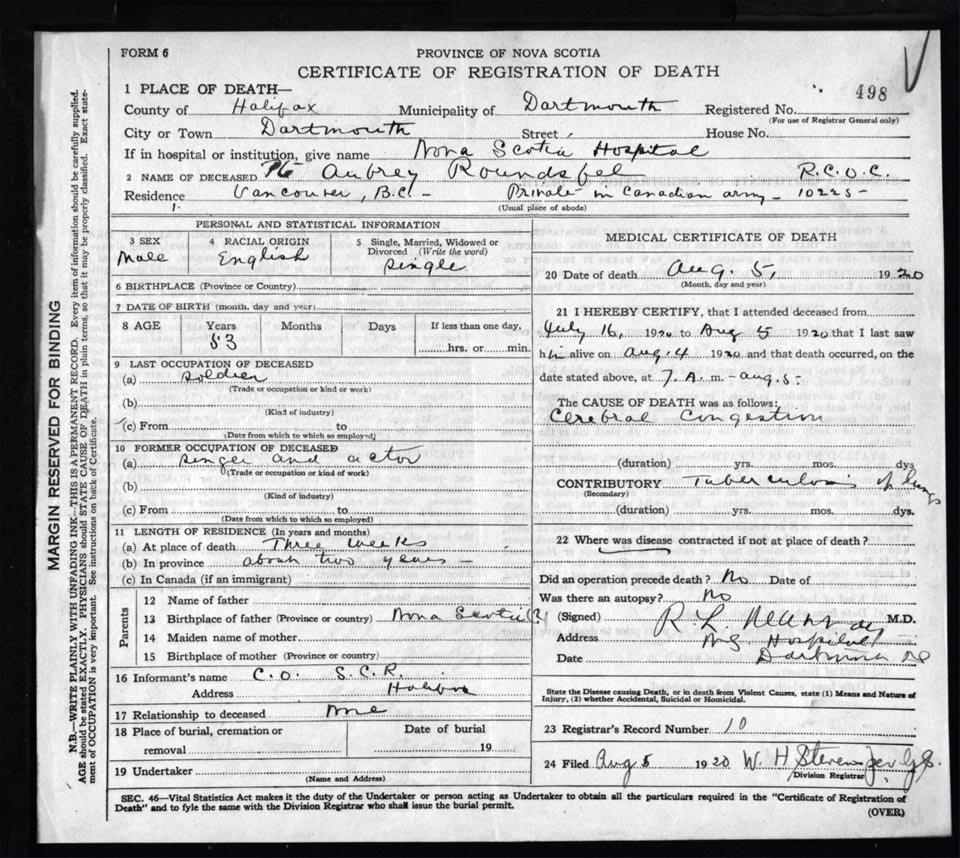 FORM 6
PROVINCE OF NOVA SCOTIA
CERTIFICATE OF REGISTRATION OF DEATH
498
1 PLACE OF DEATH—
County of Halifax Municipality of Dartmouth Registered No.
(For use of Registrar General only)
City or Town Dartmouth Street House No.
If in hospital or institution, give name Nova Scotia Hospital
2 NAME OF DECEASED Pte Aubrey Roundsfel R.C.O.C.
Residence Vancouver, B.C.— Private in Canadian army— 10225—
(Usual place of abode)
PERSONAL AND STATISTICAL INFORMATION
3 SEX 4 RACIAL ORIGIN 5 Single, Married, Widowed or Divorced (Write the word)
Male English Single
6 BIRTHPLACE (Province or Country)
7 DATE OF BIRTH (month, day and year)
8 AGE Years Months Days If less than one day,
53 hrs. or min.
9 LAST OCCUPATION OF DECEASED
(a) Soldier
(Trade or occupation or kind or work)
(b)
(Kind of industry)
(c) From to
(Date from which to which so employed)
10 FORMER OCCUPATION OF DECEASED
(a) Singer and actor
(Trade or occupation or kind of work)
(b)
(Kind of industry)
(c) From to
(Date from which to which so employed)
11 LENGTH OF RESIDENCE (In years and months)
(a) At place of death Three weeks
(b) In province about two years—
(c) In Canada (if an immigrant)
Parents
12 Name of father
13 Birthplace of father (Province or country) Nova Scotia (?)
14 Maiden name of mother
15 Birthplace of mother (Province or country)
16 Informant's name C.O. S.C.R.
Address Halifax
17 Relationship to deceased None
18 Place of burial, cremation or removal Date of burial 19
19 Undertaker
(Name and Address)
MEDICAL CERTIFICATE OF DEATH
20 Date of death Aug. 5, 1920
(Month, day and year)
21 I HEREBY CERTIFY, that I attended deceased from
July 16, 1920 to Aug 5 1920 that I last saw
him alive on Aug. 4 1920 and that death occurred, on the
date stated above, at 7. A. m. — Aug. 5.
The CAUSE OF DEATH was as follows:
Cerebral Congestion
(duration) yrs. mos. dys
CONTRIBUTORY Tuberculosis of lungs
(Secondary)
(duration) yrs. mos. dys.
22 Where was disease contracted if not at place of death?
Did an operation precede death? No Date of
Was there an autopsy? No
(Signed) R. L. M.D.
Address N.S. Hospital
Date Dartmouth NS
State the Disease causing Death, or in death from Violent Causes, state (1) Means and Nature of Injury, (2) whether Accidental, Suicidal or Homicidal.
23 Registrar's Record Number 10
24 Filed Aug 5 1920 W. H Stevens
Division Registrar
SEC. 46—Vital Statistics Act makes it the duty of the Undertaker or person acting as Undertaker to obtain all the particulars required in the "Certificate of Registration of
Death" and to fyle the same with the Division Registrar who shall issue the burial permit.
(OVER)
MARGIN RESERVED FOR BINDING
N.B.—WRITE PLAINLY WITH UNFADING INK—THIS IS A PERMANENT RECORD. Every item of information should be carefully supplied.
AGE should be stated EXACTLY. PHYSICIANS should STATE CAUSE OF DEATH in plain terms, so that it may be properly classified. Exact statement of OCCUPATION is very important. See instructions on back of Certificate.